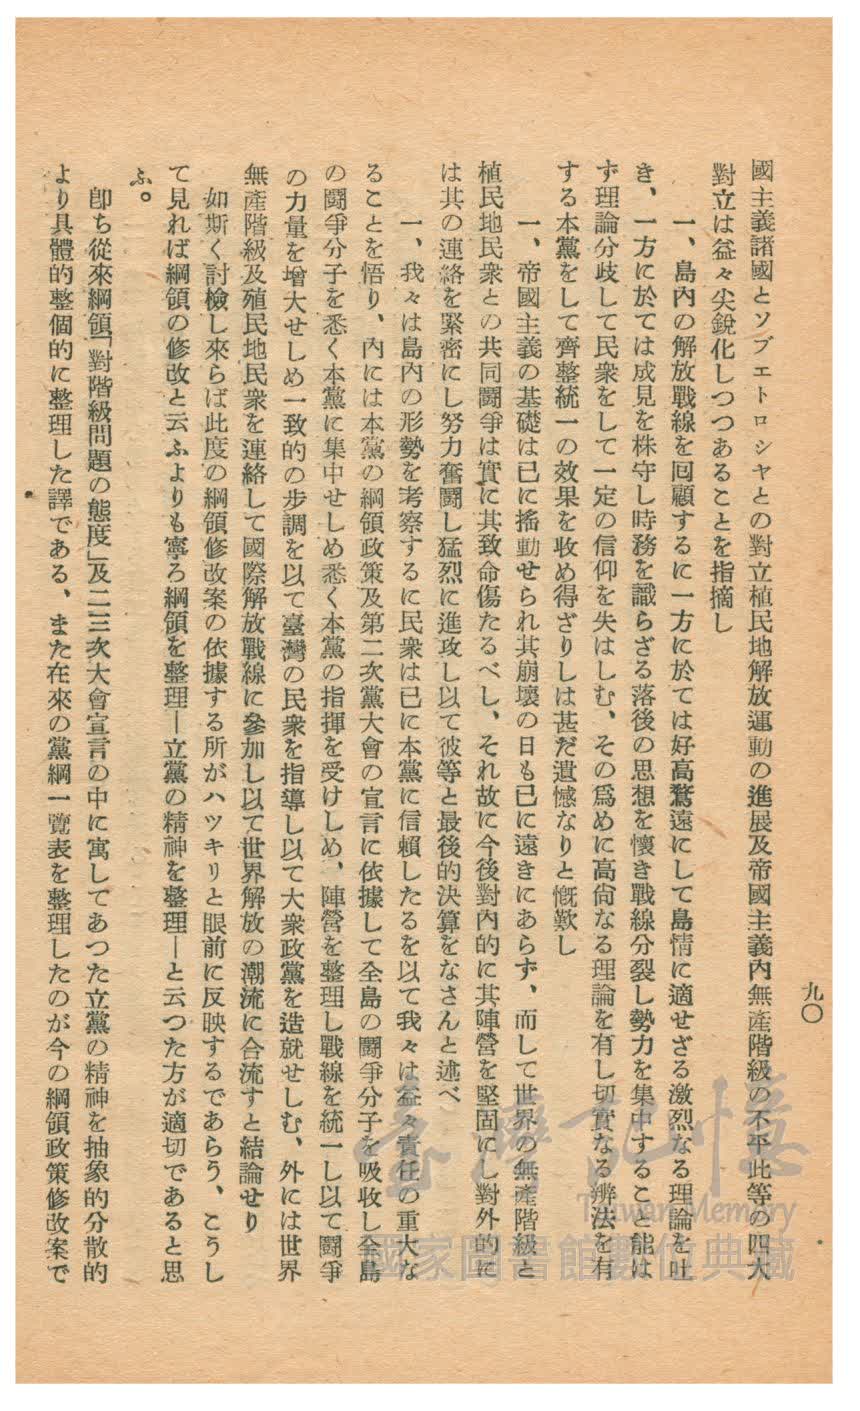 九〇
國主義諸國とソブエトロシヤとの對立植民地解放運動の進展及帝國主義內無產階級の不平此等の四大
對立は益々尖銳化しつつあることを指摘し
一、島內の解放戰線を回顧するに一方に於ては好高騖遠にして島情に適せざる激烈なる理論を吐
き、一方に於ては成見を株守し時務を識らざる落後の思想を懷き戰線分裂し勢力を集中すること能は
ず理論分歧して民衆をして一定の信仰を失はしむ、その爲めに高尙なる理論を有し切實なる辨法を有
する本黨をして齊整統一の效果を收め得ざりしは甚だ遺憾なりと慨歎し
一、帝國主義の基礎は已に搖動せられ其崩壞の日も已に遠きにあらず、而して世界の無產階級と
植民地民衆との共同鬪爭は實に其致命傷たるべし、それ故に今後對內的に其陣營を堅固にし對外的に
は其の連絡を緊密にし努力奮鬪し猛烈に進攻し以て彼等と最後的決算をなさんと述べ
一、我々は島內の形勢を考察するに民衆は已に本黨に信賴したるを以て我々は益々責任の重大な
ることを悟り、內には本黨の綱領政策及第二次黨大會の宣言に依據して全島の鬪爭分子を吸收し全島
の鬪爭分子を悉く本黨に集中せしめ悉く本黨の指揮を受けしめ、陣營を整理し戰線を統一し以て鬪爭
の力量を增大せしめ一致的の步調を以て臺灣の民衆を指導し以て大衆政黨を造就せしむ、外には世界
無產階級及殖民地民衆を連絡して國際解放戰線に參加し以て世界解放の潮流に合流すと結論せり
如斯く討檢し來らば此度の綱領修改案の依據する所がハツキリと眼前に反映するであらう、こうし
て見れば綱領の修改と云ふよりも寧ろ綱領を整理―立黨の精神を整理―と云つた方が適切であると思
ふ。
卽ち從來綱領「對階級問題の態度」及二三次大會宣言の中に寓してあつた立黨の精神を抽象的分散的
より具體的整個的に整理した譯である、また在來の黨綱一覽表を整理したのが今の綱領政策修改案で
臺灣記憶
Taiwan Memory
國家圖書館數位典藏